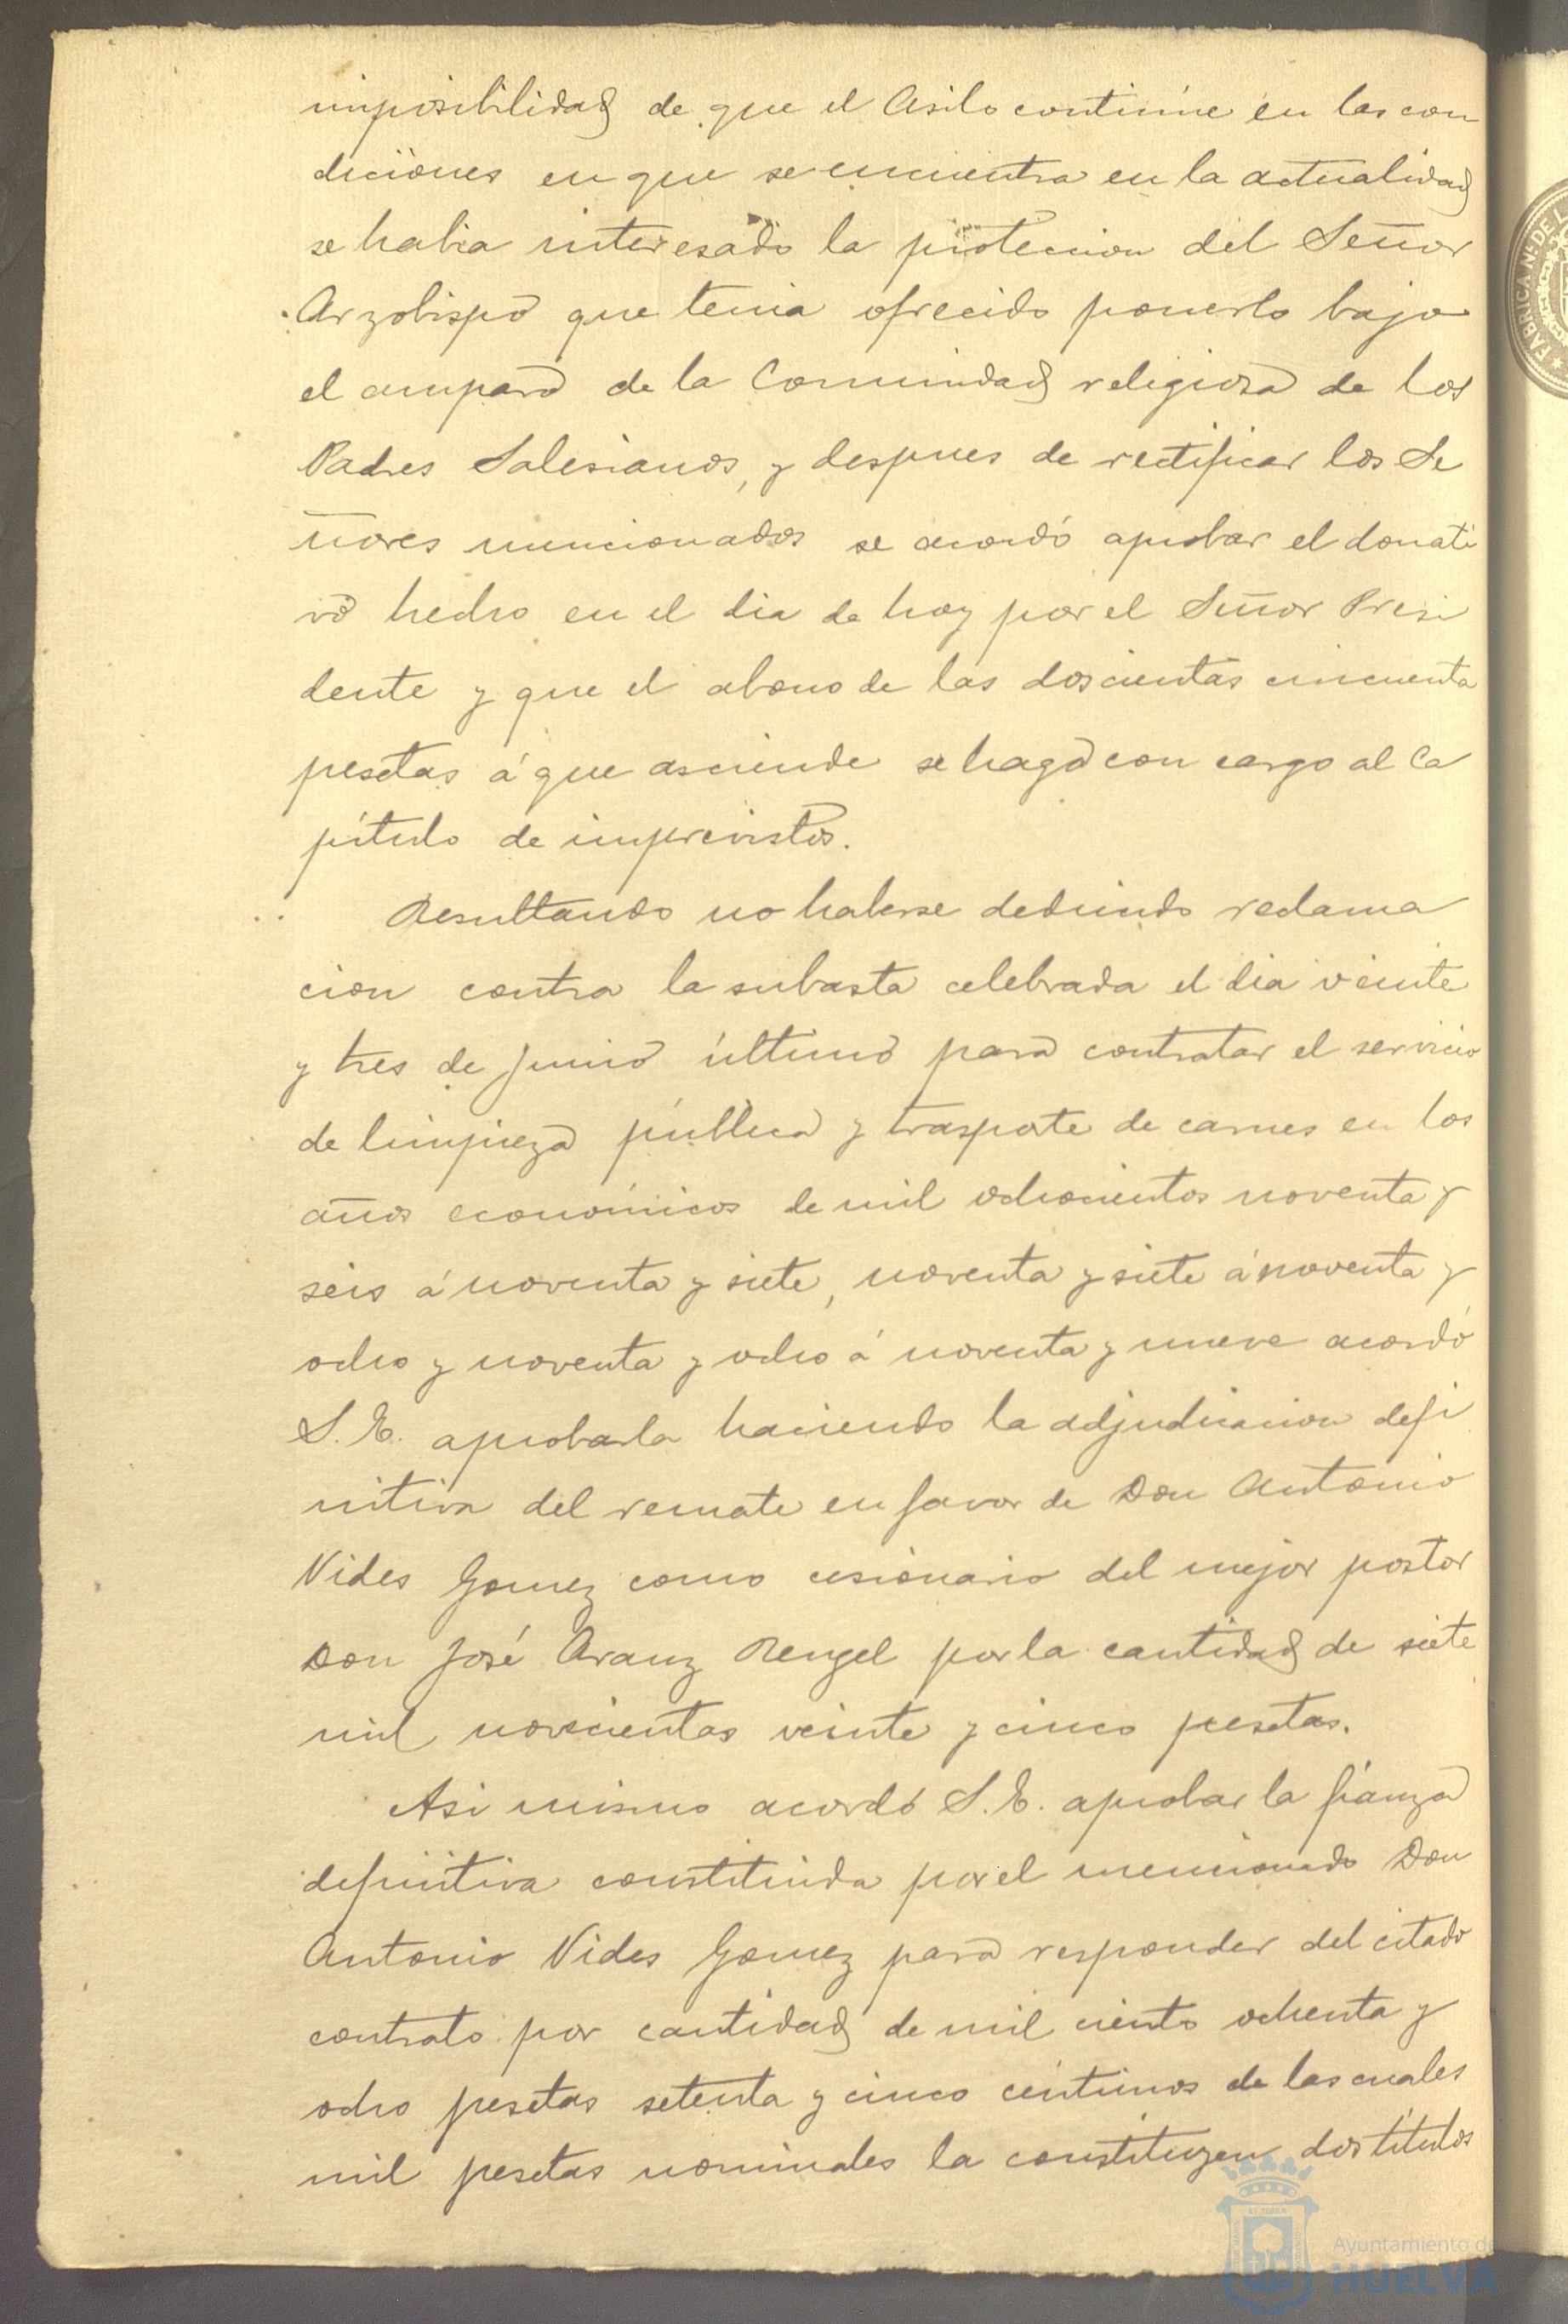 imposibilidad de que el Asilo continúe en las con
diciones en que se encuentra en la actualidad
se habia interesado la proteccion del Señor
Arzobispo que tenia ofrecido ponerlo bajo
el amparo de la Comunidad religiosa de los
Padres Salesianos, y despues de rectificar los Se
ñores mencionados se acordó aprobar el donati
vo hecho en el dia de hoy por el Señor Presi
dente y que el abono de las doscientas cincuenta
pesetas á que asciende se haga con cargo al Ca
pítulo de imprevistos.
Resultando no haberse deducido reclama
cion contra la subasta celebrada el dia veinte
y tres de Junio último para contratar el servicio
de limpieza pública y trasporte de carnes en los
años económicos de mil ochocientos noventa y
seis á noventa y siete, noventa y siete á noventa y
ocho y noventa y ocho á noventa y nueve acordó
S. E. aprobarla haciendo la adjudicacion defi
nitiva del remate en favor de Don Antonio
Vides Gomez como cesionario del mejor postor
Don José Aranz Rengel por la cantidad de siete
mil novecientas veinte y cinco pesetas.
Asi mismo acordó S. E. aprobar la fianza
definitiva constituida por el mencionado Don
Antonio Vides Gomez para responder del citado
contrato por cantidad de mil ciento ochenta y
ocho pesetas setenta y cinco céntimos de las cuales
mil pesetas nominales la constituyen dos títulos
FABRICA Nal DE
Ayuntamiento de
HUELVA